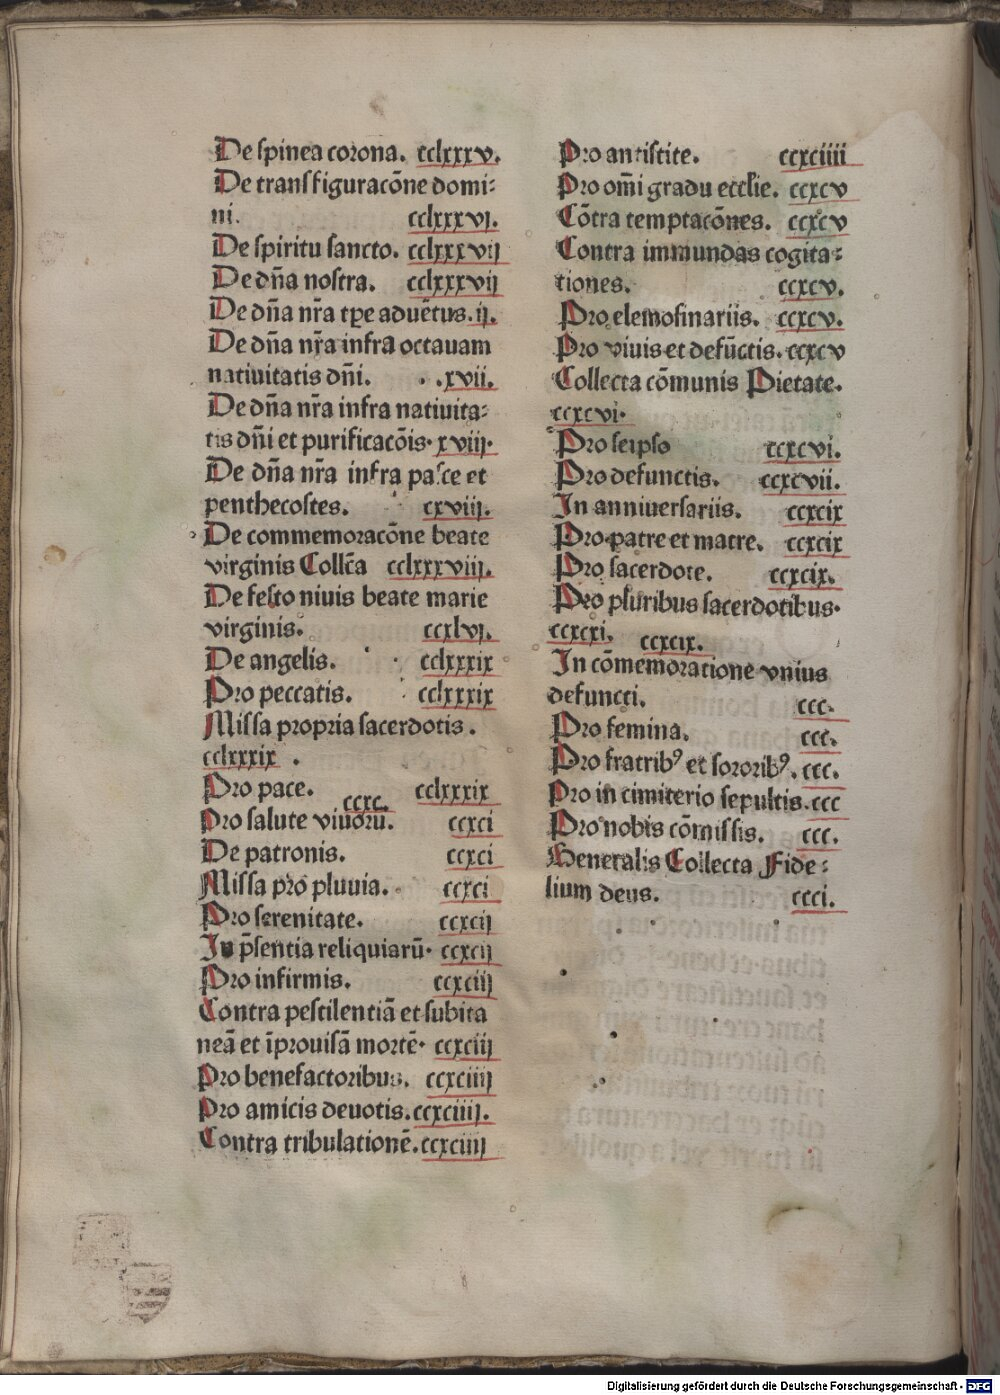 De spinea corona. cclxxxv.
De transfiguracōne domi:
ni. cclxxxvj.
De spiritu sancto. cclxxxvij
De dn̄a nostra. cclxxxvij
De dn̄a nr̄a tp̄e aduētus. ij.
De dn̄a nr̄a infra octauam
natiuitatis dn̄i. xvii.
De dn̄a nr̄a infra natiuita:
tis dn̄i et purificacōis. xviij.
De dn̄a nr̄a infra pasce et
penthecostes. cxviij.
De commemoracōne beate
virginis Collc̄a cclxxxviij.
De festo niuis beate marie
virginis. ccxlvj.
De angelis. cclxxxix
Pro peccatis. cclxxxix
Missa propria sacerdotis.
cclxxxix.
Pro pace. cclxxxix
ccxc.
Pro salute viuorū. ccxci
De patronis. ccxci
Missa pro pluuia. ccxci
Pro serenitate. ccxcij
In p̄sentia reliquiarū. ccxcij
Pro infirmis. ccxciij
Contra pestilentiā et subita
neā et īprouisā mortē. ccxciij
Pro benefactoribus. ccxciiij
Pro amicis deuotis. ccxciiij.
Contra tribulationē. ccxciiij
Pro antistite. ccxciiij
Pro om̄i gradu eccl̄ie. ccxcv
Cōtra temptacōnes. ccxcv
Contra immundas cogita:
tiones. ccxcv.
Pro elemosinariis. ccxcv.
Pro viuis et defūctis. ccxcv
Collecta cōmunis Pietate.
ccxcvi.
Pro seipso ccxcvi.
Pro defunctis. ccxcvii.
In anniuersariis. ccxcix
Pro patre et matre. ccxcix
Pro sacerdote. ccxcix.
Pro pluribus sacerdotibus.
ccxcxi. ccxcix.
In cōmemoratione vnius
defuncti. ccc.
Pro femina. ccc.
Pro fratribꝰ et sororibꝰ. ccc.
Pro in cimiterio sepultis. ccc
Pro nobis cōmissis. ccc.
Generalis Collecta Fide:
lium deus. ccci.
Digitalisierung gefördert durch die Deutsche Forschungsgemeinschaft - DFG